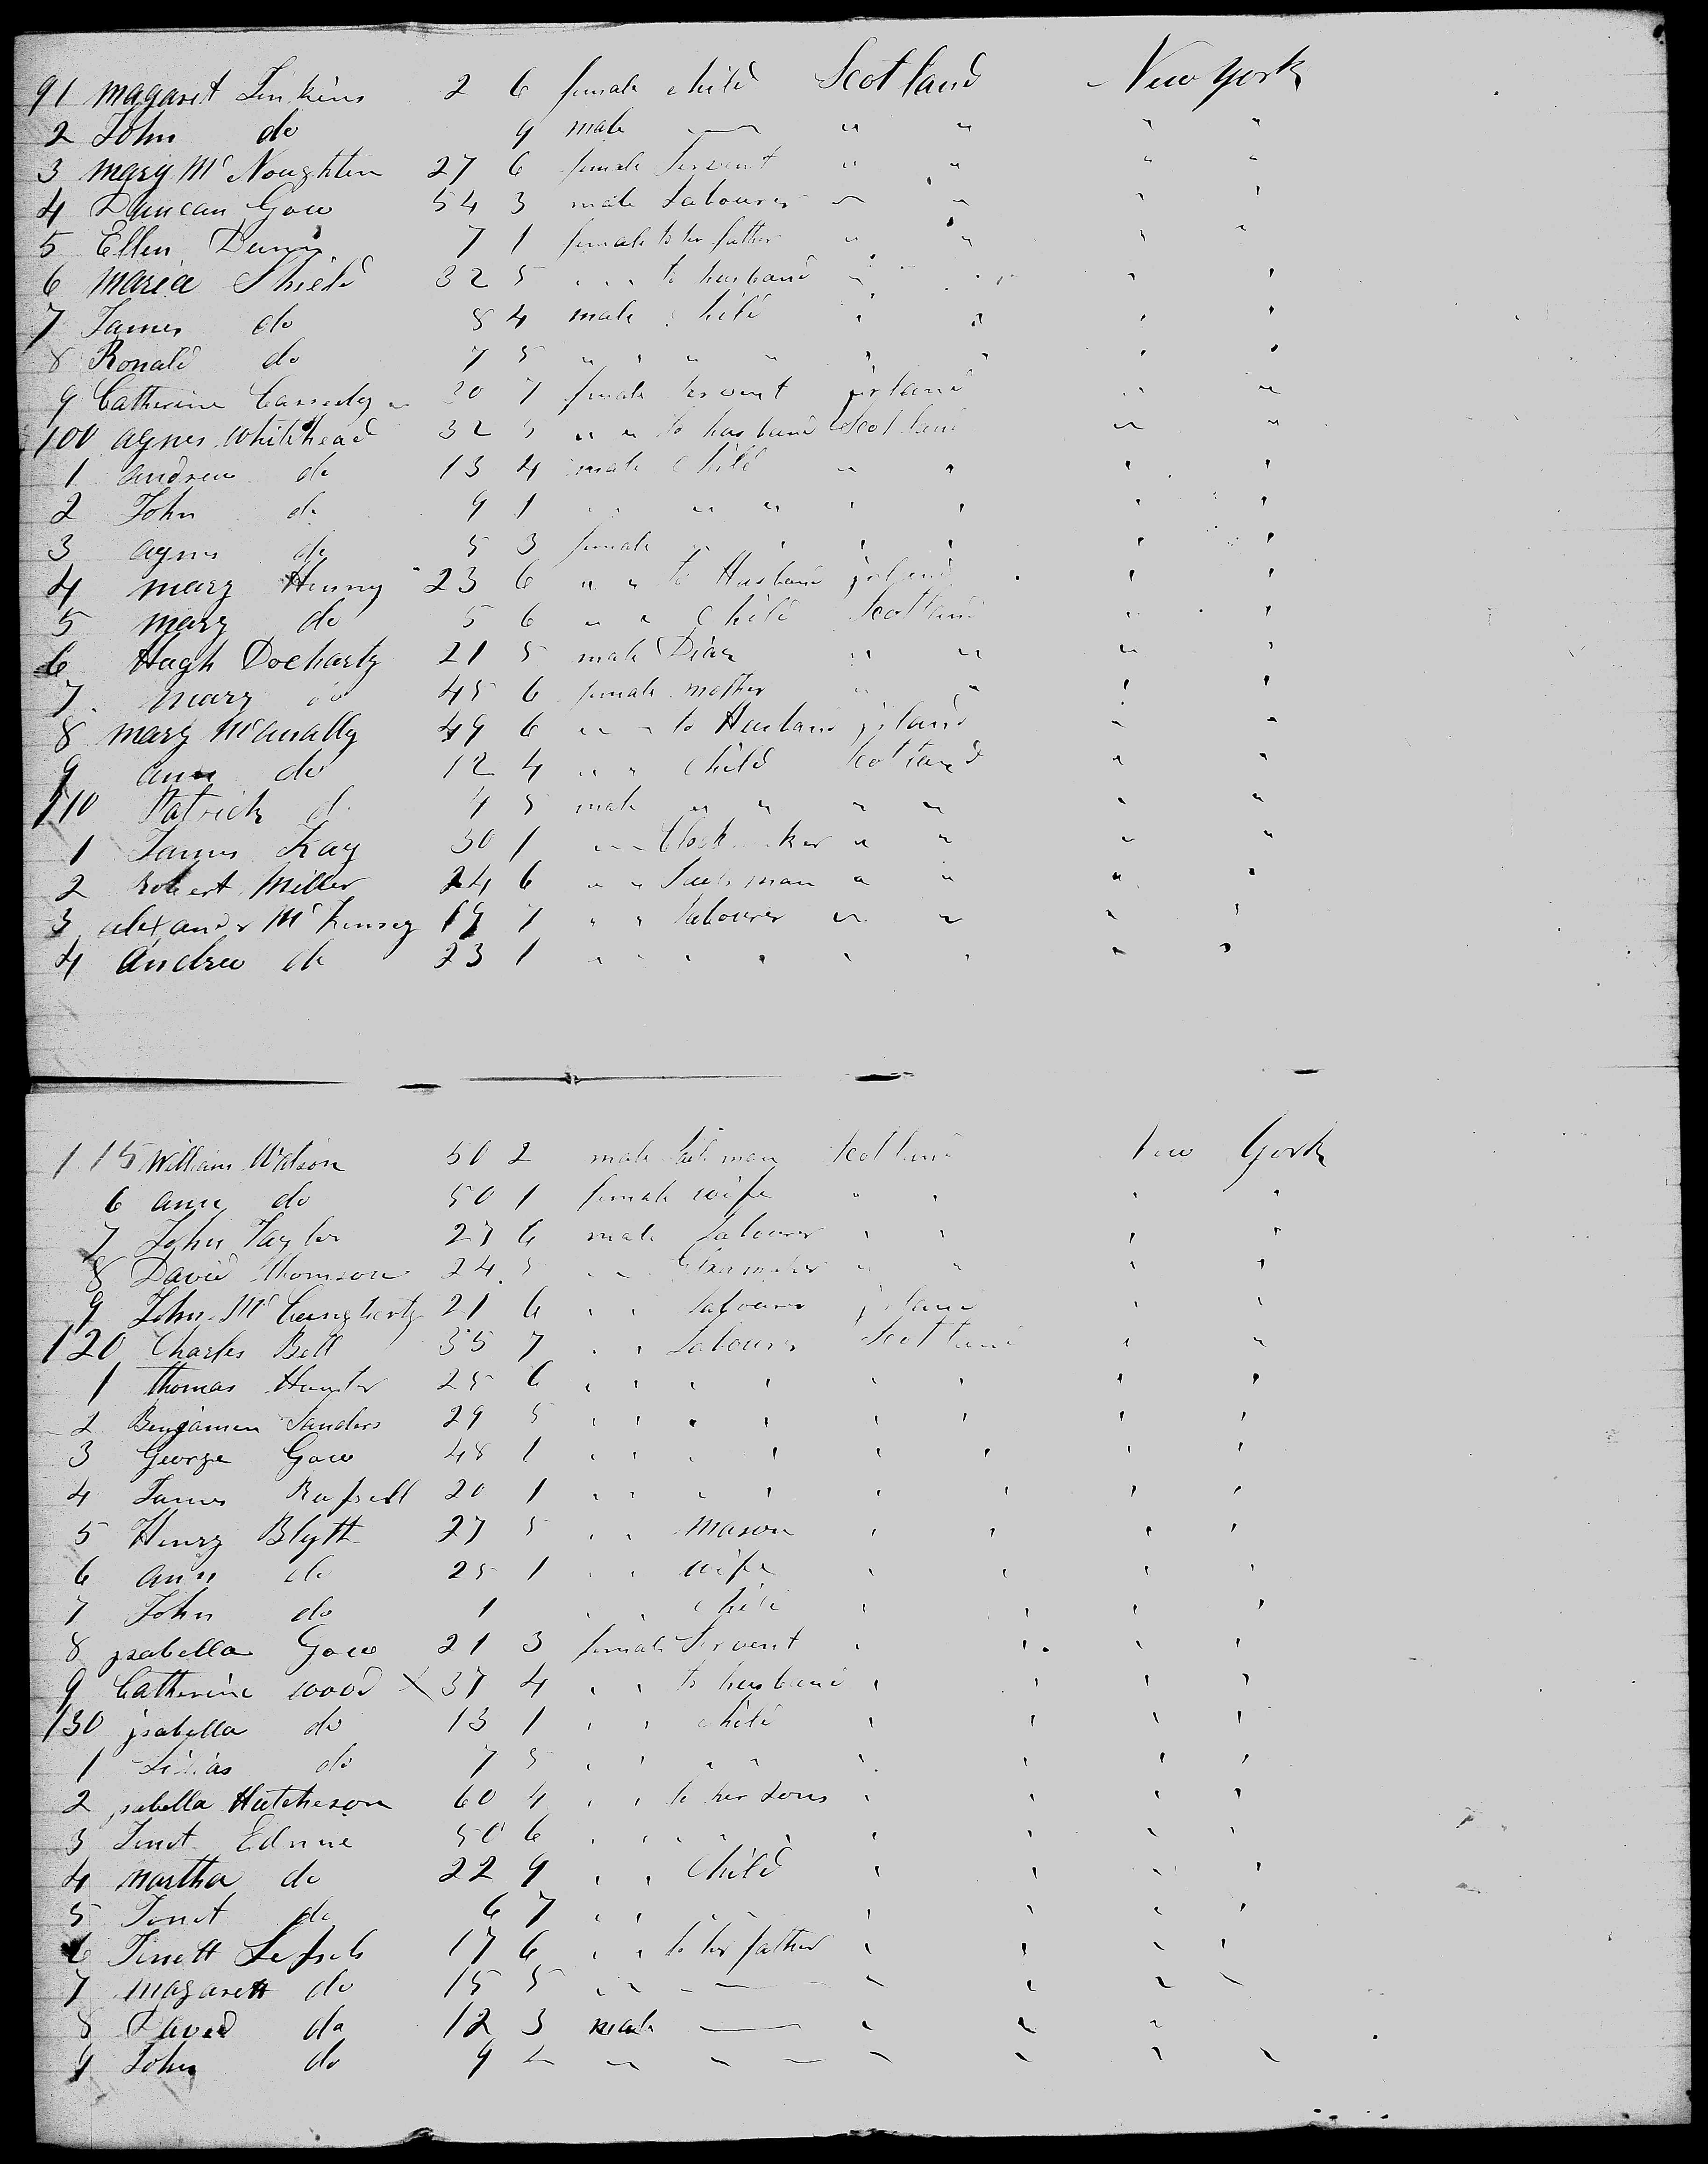 91 Magaret Jinkins 2 6 female child Scotland New York
2 John do 9 male — " " " "
3 Mary Mc Noughten 27 6 female Servent " " " "
4 Duncan Gow 54 3 male Labourer " " " "
5 Ellen Dunn 7 1 female to her father " " " "
6 Maria Shield 32 5 " " to husband " " " "
7 James do 8 4 male child " " " "
8 Ronald do 7 5 " " " " " " " "
9 Catherine Cassedy 20 7 female servent jrland " "
100 agnes Whitehead 32 5 " " to husband Scotland " "
1 andrew do 13 4 male child " " " "
2 John do 9 1 " " " " " " "
3 agnes do 5 3 female " " " " " "
4 mary Henry 23 6 " " to Husband jrland " "
5 mary do 5 6 " " Child Scotland " "
6 Hugh Docharty 21 5 male " " " "
7 mary do 45 6 female mother " " " "
8 mary McAnally 49 6 " " to Husband jrland " "
9 ann do 12 4 " " child Scotland " "
110 Patrick do 4 5 male " " " " " "
1 James Kay 30 1 " " Clock maker " " " "
2 Robert Miller 24 6 " " man " " " "
3 alexander Mc Kensey 19 7 " " labourer " " " "
4 Andrew do 23 1 " " " " " " "
115 William Watson 50 2 male man Scotland New York
6 ann do 50 1 female wife " " " "
7 John Taylor 27 6 male Labourer " " " "
8 David Thomson 24 5 " " " " " "
9 John Mc 21 6 " " labourer jrland " "
120 Charles Bell 35 7 " " Labourer Scotland " "
1 Thomas Hunter 25 6 " " " " " " " "
2 Benjamen Sanders 29 5 " " " " " " " "
3 George Gow 48 1 " " " " " " " "
4 James Rufsell 20 1 " " " " " " " "
5 Henry Blyth 27 5 " " Mason " " " "
6 ann do 25 1 " " wife " " " "
7 John do 1 " " child " " " "
8 jsabella Gow 21 3 female Servent " " " "
9 Catherine wood X 37 4 " " to husband " " " "
130 jsabella do 13 1 " " child " " " "
1 Lilias do 7 5 " " " " " " " "
2 jsabella Hutcheson 60 4 " " to her sons " " " "
3 Jenet 50 6 " " " " " " " "
4 martha do 22 9 " " Child " " " "
5 Jenet do 6 7 " " " " " " " "
6 Jenett 17 6 " " to her father " " " "
7 magarett do 15 5 " " — " " " "
8 David do 12 3 male — " " " "
9 John do 9 " " " — " " " "